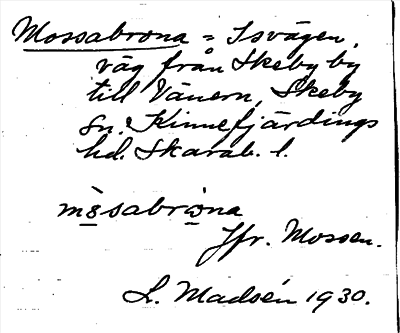 Mossabrona = Isvägen,
väg från Skeby by
till Vänern, Skeby
sn. Kinnefjärdings
hd. Skarab. l.
mòsabròna
Jfr. Mossen.
L. Madsén 1930.